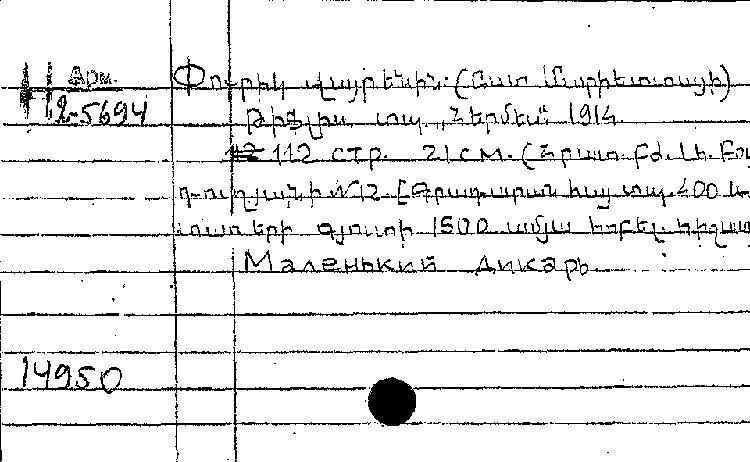 Арм.
2-5694
Փոքրիկ վայրենին. (Ըստ Մարիետտայի)
Թիֆլիս տպ. „Հերմես“ 1914
112 стр. 21 см. (Հրատ. բժ. Խ. Բու
դուղյանի №12. [Գրադարան հայ տպ. 400 և
տառերի գյուտի 1500 ամյա
Маленький дикарь
14950